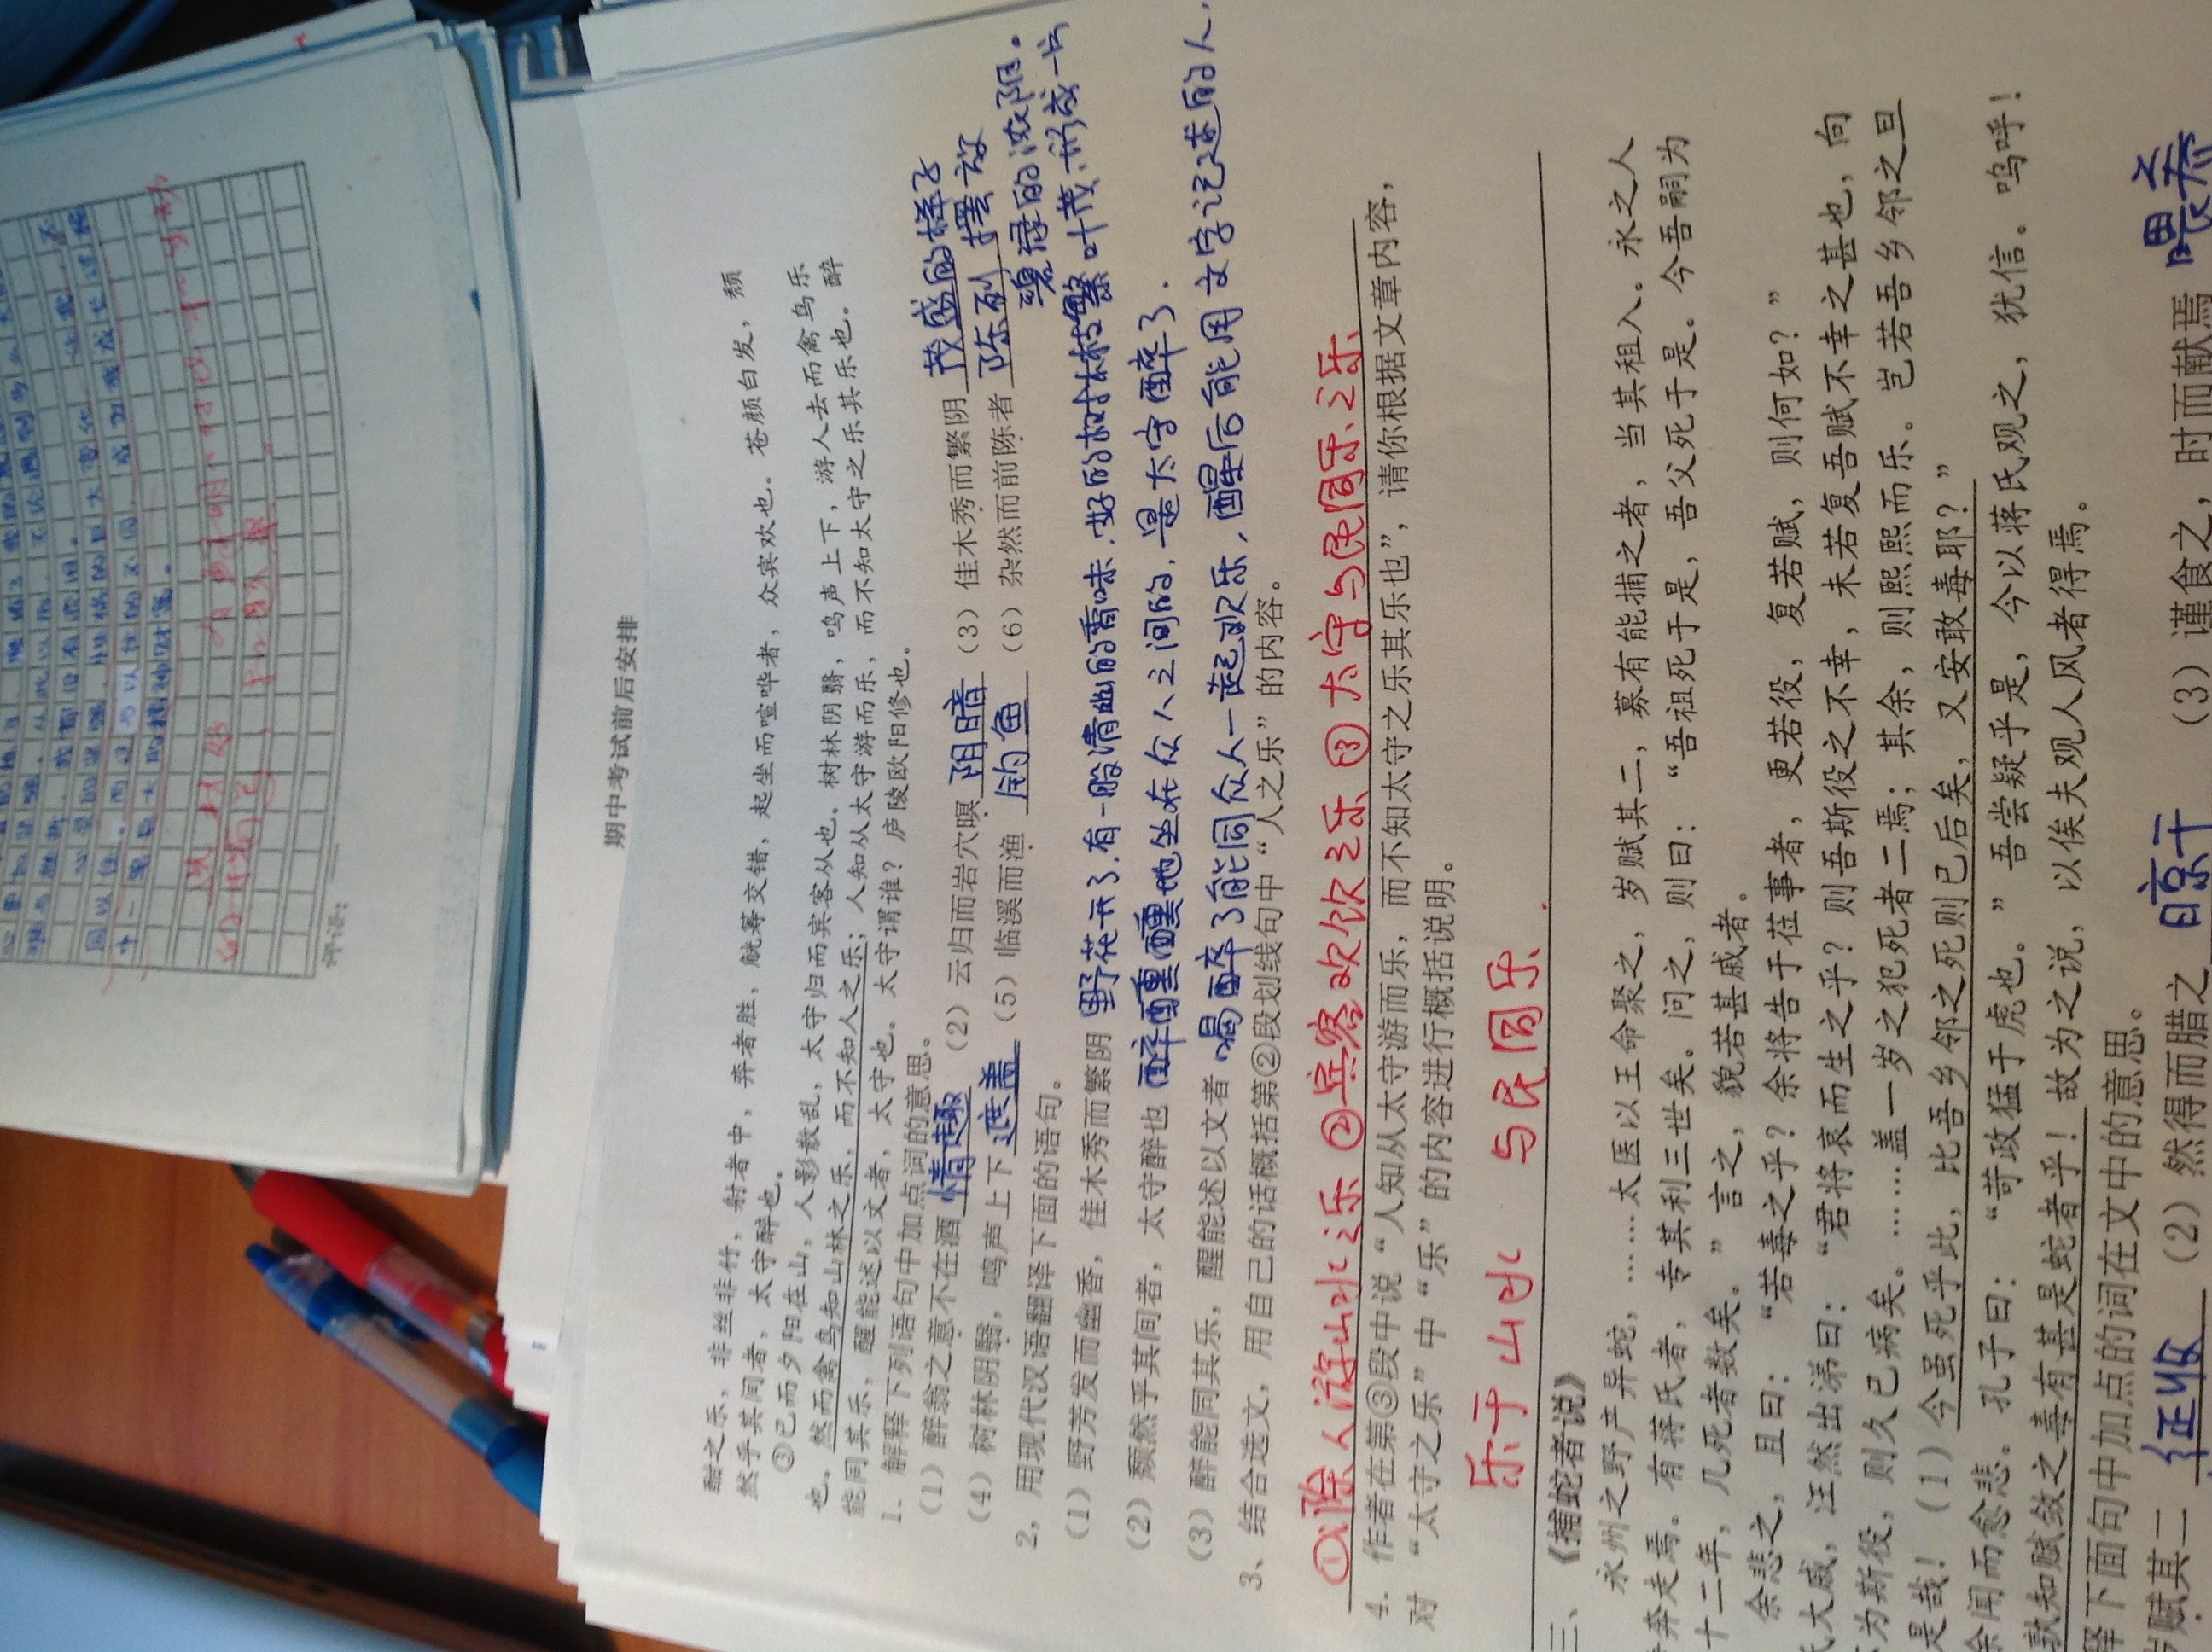 难与挫折，我都没有退困。
心灵的坚强，性格的巨大变化，让我，不
同以往。而这与以往的不同，成为我成长过程
中一笔巨大的精神财富。
选材好，有鲜明对比和生动
的描写，扣题紧。
评语：
期中考试前后安排
酣之乐，非丝非竹，射者中，弈者胜，觥筹交错，起坐而喧哗者，众宾欢也。苍颜白发，颓
然乎其间者，太守醉也。
③已而夕阳在山，人影散乱，太守归而宾客从也。树林阴翳，鸣声上下，游人去而禽鸟乐
也。然而禽鸟知山林之乐，而不知人之乐；人知从太守游而乐，而不知太守之乐其乐也。醉
能同其乐，醒能述以文者，太守也。太守谓谁？庐陵欧阳修也。
1．解释下列语句中加点词的意思。
（1）醉翁之意不在酒 情趣 （2）云归而岩穴暝 阴暗 （3）佳木秀而繁阴 茂盛的样子
（4）树林阴翳，鸣声上下 遮盖 （5）临溪而渔 钓鱼 （6）杂然而前陈者 陈列 摆放
2，用现代汉语翻译下面的语句。
（1）野芳发而幽香，佳木秀而繁阴 野花开了，有一股清幽的香味，好的树木枝繁叶茂，形成一片
碧绿的浓阴。
（2）颓然乎其间者，太守醉也 醉醺醺地坐在众人之间的，是太守醉了．
（3）醉能同其乐，醒能述以文者 喝醉了能同众人一起欢乐，醒后能用文字记述的人．
3、结合选文，用自己的话概括第②段划线句中“人之乐”的内容。
①滁人游山水之乐 ②宾客欢饮之乐 ③太守与民同乐之乐
4．作者在第③段中说“人知从太守游而乐，而不知太守之乐其乐也”，请你根据文章内容，
对 “太守之乐”中“乐”的内容进行概括说明。
乐于山水 与民同乐．
三、《捕蛇者说》
永州之野产异蛇，……太医以王命聚之，岁赋其二，募有能捕之者，当其租入。永之人
奔走焉。有蒋氏者，专其利三世矣。问之，则曰：“吾祖死于是，吾父死于是。今吾嗣为
十二年，几死者数矣。”言之，貌若甚戚者。
余悲之，且曰：“若毒之乎？余将告于莅事者，更若役，复若赋，则何如？”
氏大戚，汪然出涕曰：“君将哀而生之乎？则吾斯役之不幸，未若复吾赋不幸之甚也，向
不为斯役，则久已病矣。……盖一岁之犯死者二焉；其余，则熙熙而乐。岂若吾乡邻之旦
是哉！（1）今虽死乎此，比吾乡邻之死则已后矣，又安敢毒耶？”
余闻而愈悲。孔子曰：“苛政猛于虎也。”吾尝疑乎是，今以蒋氏观之，犹信。呜呼！
孰知赋敛之毒有甚是蛇者乎！故为之说，以俟夫观人风者得焉。
释下面句中加点的词在文中的意思。
岁赋其二 征收 （2）然得而腊之 晾干 （3）谨食之，时而献焉 喂养